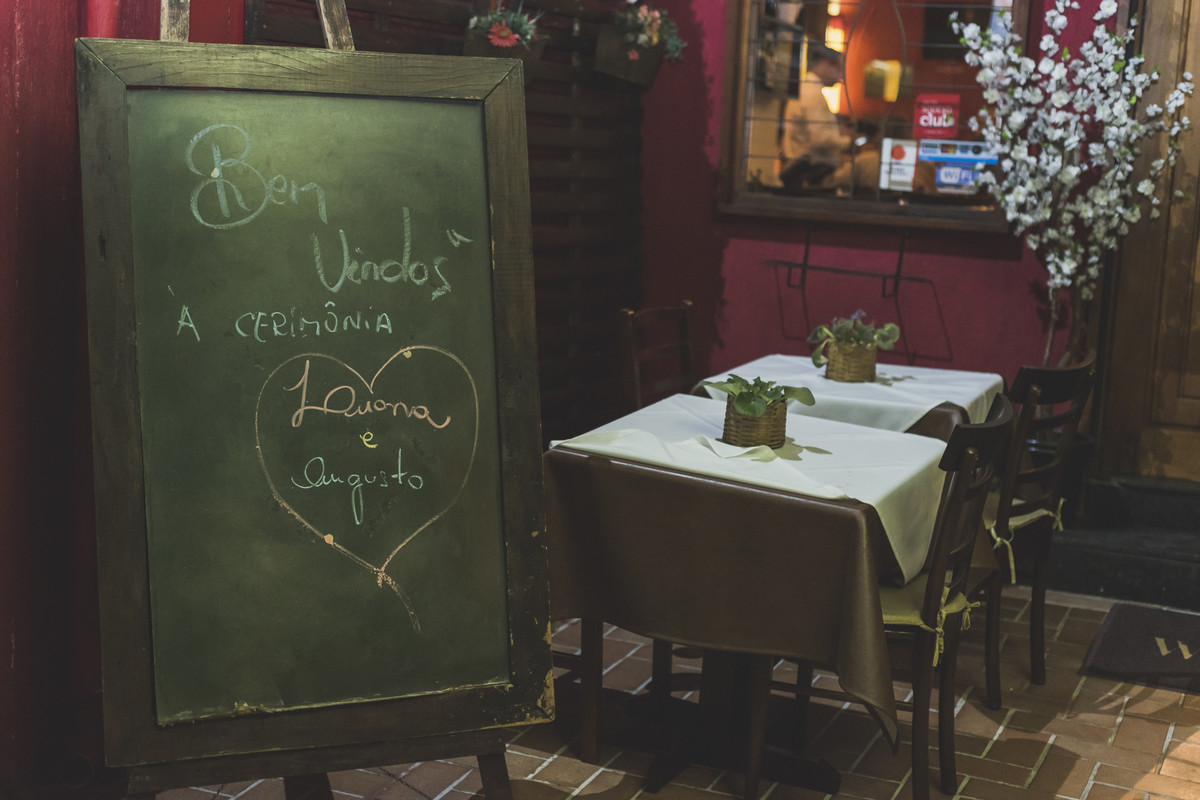 Bem
Vindos"
À CERIMÔNIA
Lauana
e
Augusto
club
WiFi
W